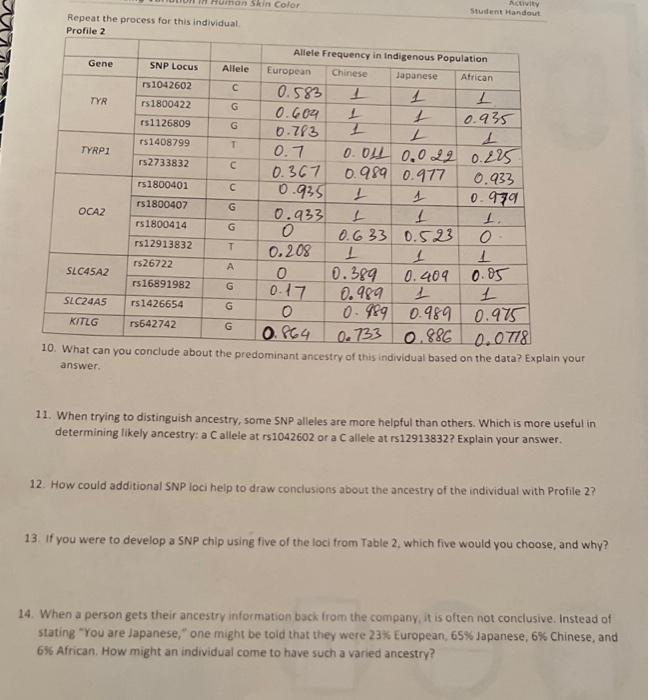 in Human Skin Color
Activity
Student Handout
Repeat the process for this individual.
Profile 2
Allele Frequency in Indigenous Population
Gene SNP Locus Allele European Chinese Japanese African
TYR rs1042602 C 0.583 1 1 1
rs1800422 G 0.609 1 1 0.935
rs1126809 G 0.783 1 1 1
TYRP1 rs1408799 T 0.7 0.011 0.022 0.225
rs2733832 C 0.367 0.989 0.977 0.933
OCA2 rs1800401 C 0.935 1 1 0.979
rs1800407 G 0.933 1 1 1.
rs1800414 G 0 0.633 0.523 0
rs12913832 T 0.208 1 1 1
SLC45A2 rs26722 A 0 0.389 0.409 0.05
rs16891982 G 0.17 0.989 1 1
SLC24A5 rs1426654 G 0 0.989 0.989 0.975
KITLG rs642742 G 0.864 0.733 0.886 0.0778
10. What can you conclude about the predominant ancestry of this individual based on the data? Explain your
answer.
11. When trying to distinguish ancestry, some SNP alleles are more helpful than others. Which is more useful in
determining likely ancestry: a C allele at rs1042602 or a C allele at rs12913832? Explain your answer.
12. How could additional SNP loci help to draw conclusions about the ancestry of the individual with Profile 2?
13. If you were to develop a SNP chip using five of the loci from Table 2, which five would you choose, and why?
14. When a person gets their ancestry information back from the company, it is often not conclusive. Instead of
stating "You are Japanese," one might be told that they were 23% European, 65% Japanese, 6% Chinese, and
6% African. How might an individual come to have such a varied ancestry?